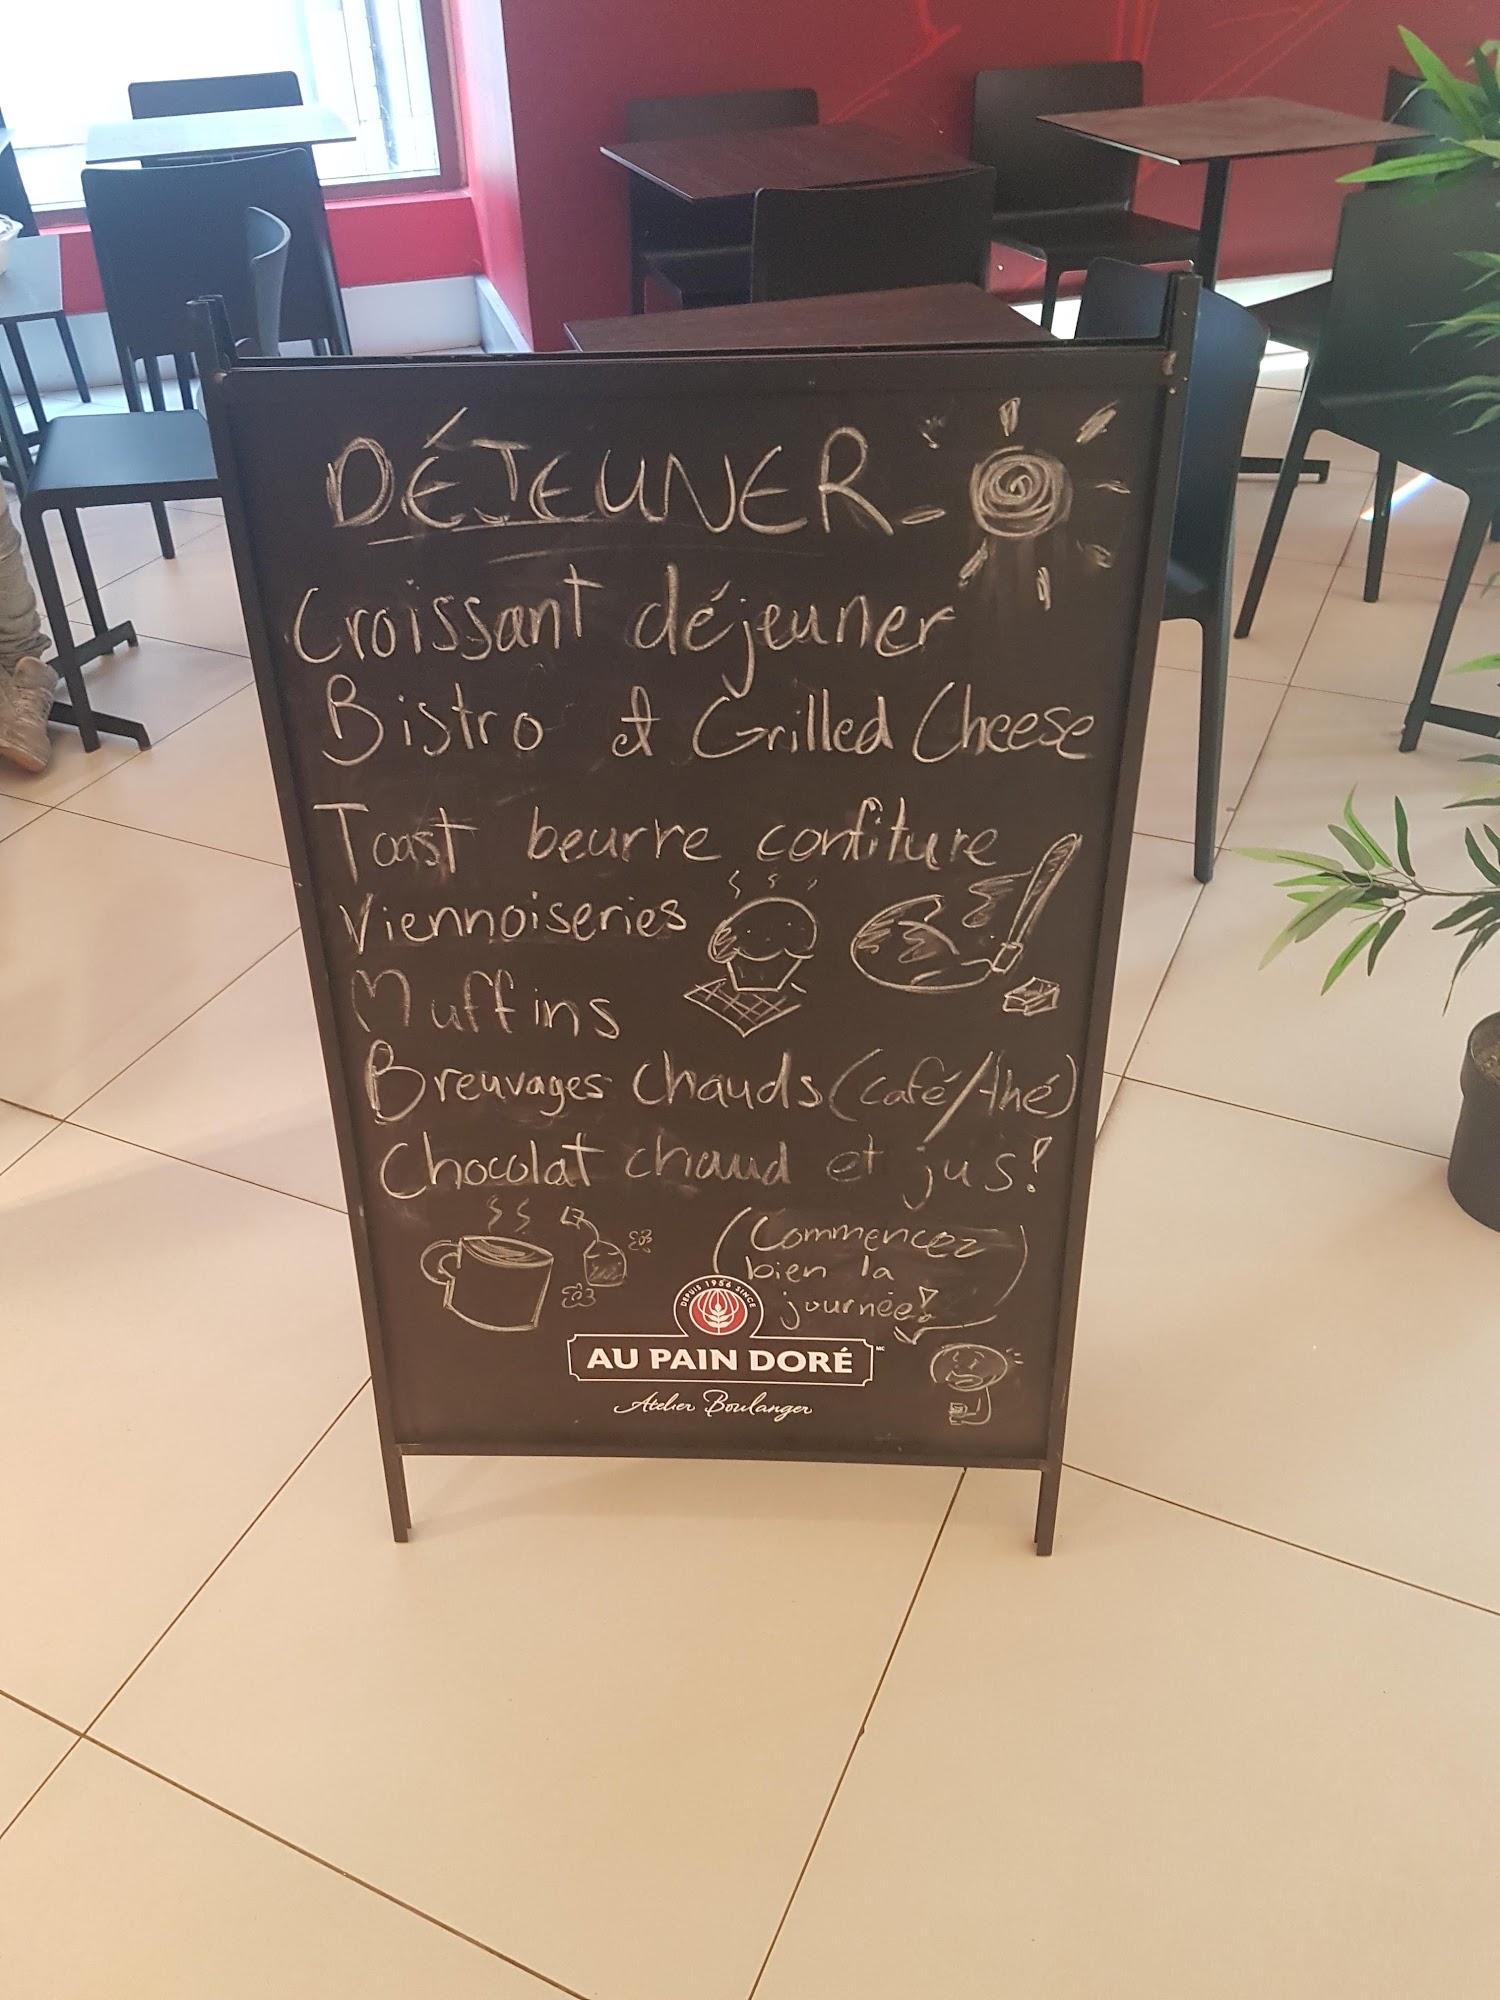 DÉJEUNER
Croissant déjeuner
Bistro et Grilled Cheese
Toast beurre confiture
Viennoiseries
Muffins
Breuvages chauds (café/thé)
Chocolat chaud et jus!
(Commencez
bien la
journée!)
DEPUIS 1956 SINCE
AU PAIN DORÉ MC
Atelier Boulanger